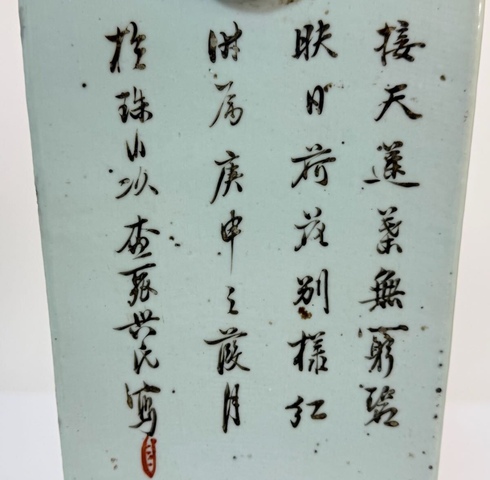 接天蓮葉無窮碧
映日荷花別樣紅
時属庚申之葭月
於珠山次興氏寫